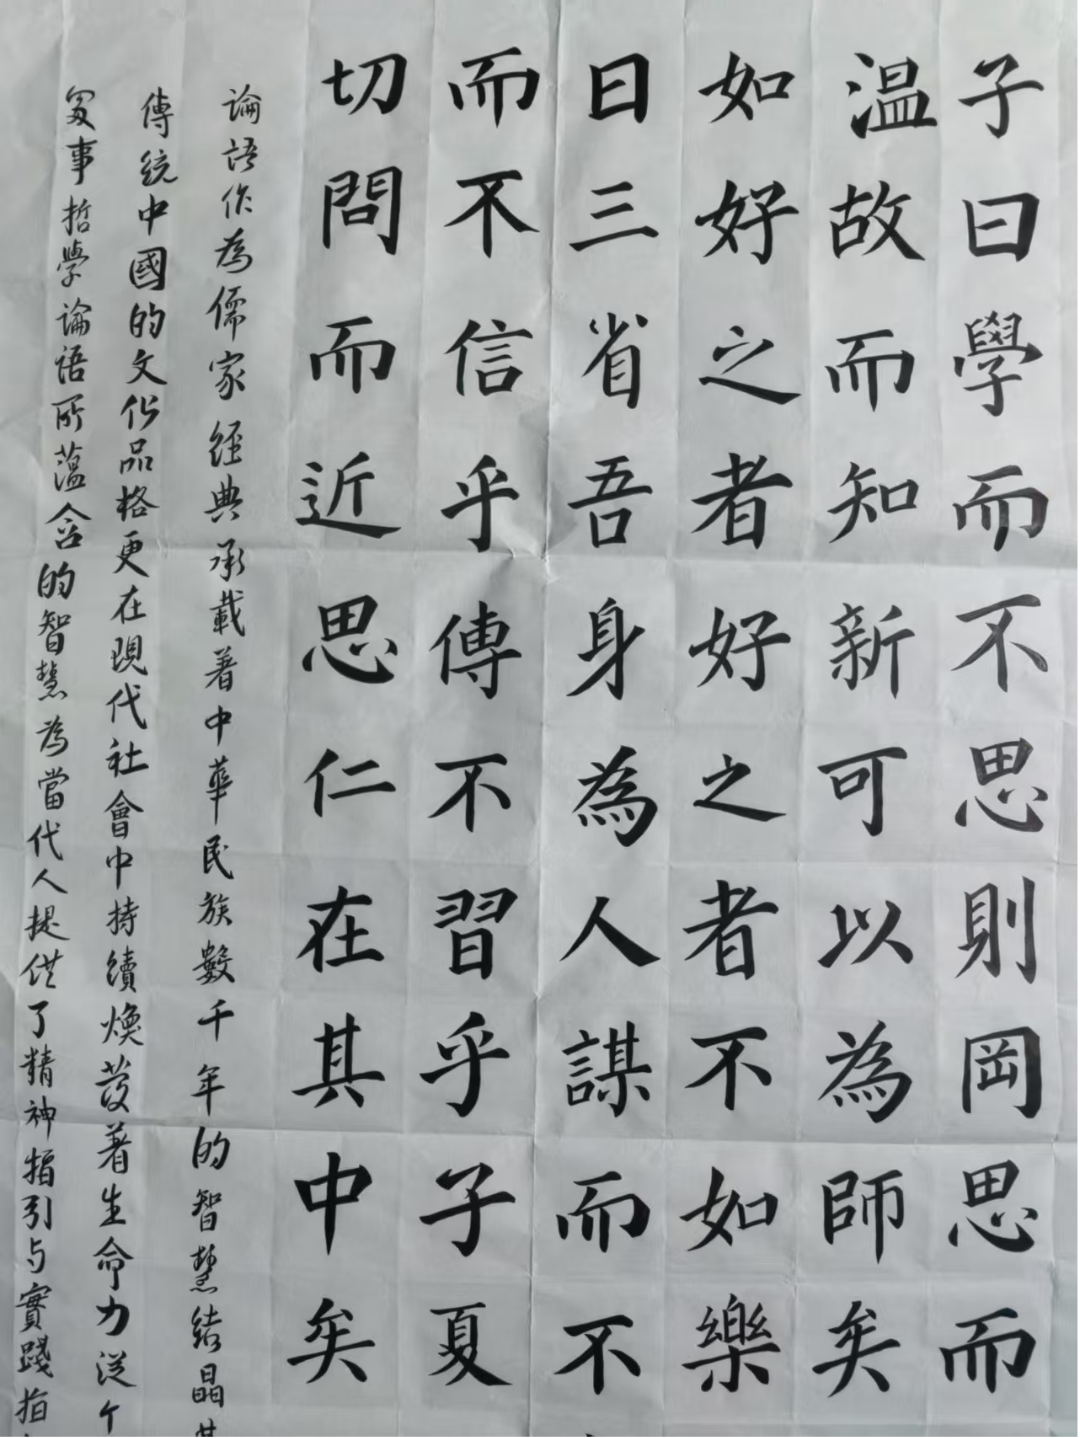 子曰學而不思則罔思而
温故而知新可以為師矣
如好之者好之者不如樂
日三省吾身為人謀而不
而不信乎傳不習乎子夏
切問而近思仁在其中矣
論語作為儒家經典承載著中華民族數千年的智慧結晶其
傳統中國的文化品格更在現代社會中持續煥發著生命力從个
處事哲學論語所蕴含的智慧為當代人提供了精神指引与實踐指